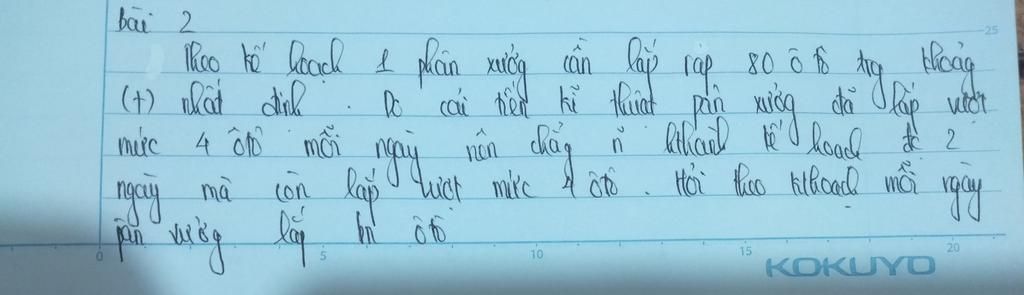 bài 2
theo kế hoạch 1 phân xưởng cần lắp ráp 80 ô tô trg khoảg
(t) nhất định. Do cải tiến kĩ thuật pân xưởng đã lắp vượt
mức 4 ôtô mỗi ngày nên chẳg n~ hthành kế hoạch đc 2
ngày mà còn lắp vượt mức 4 ôtô. Hỏi theo khoạch mỗi ngày
pân xưởg lắp bn ôtô
25
0 5 10 15 20
KOKUYO